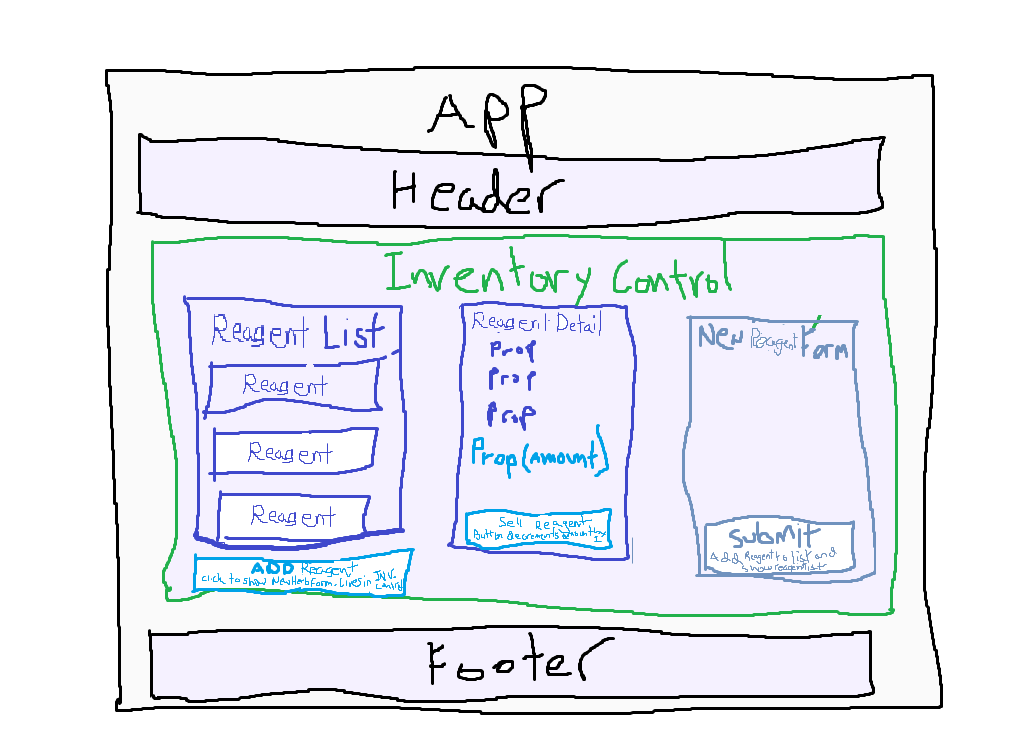 APP
Header
Inventory Control
Reagent List
Reagent
Reagent
Reagent
ADD Reagent
click to show NewHerbForm. Lives in Inv. Control
Reagent Detail
Prop
Prop
Prop
Prop (Amount)
Sell Reagent
Button decrements
New Reagent Form
Submit
Add Reagent to list and
show reagentlist
Footer